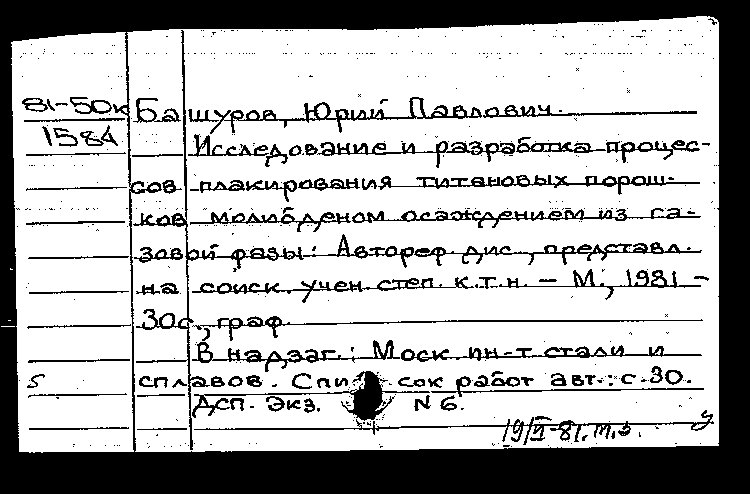 81-50к Башуров, Юрий Павлович.
1584 Исследование и разработка процес-
сов плакирования титановых порош-
ков молибденом осаждением из га-
зовой фазы: Автореф. дис., представл.
на соиск. учен. степ. к.т.н. – М., 1981 –
30с., граф.
В надзаг.: Моск. ин-т стали и
5 сплавов. Список работ авт.: с.30.
Дсп. Экз. N 6.